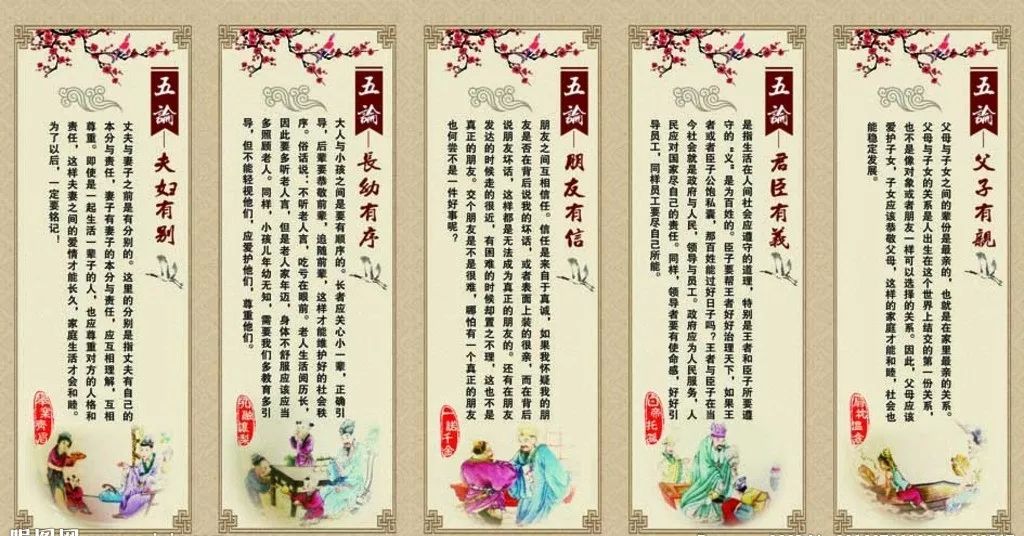 五論—父子有親
父母与子女之间的辈份是最亲的，也就是在家里最亲的关系。
父母与子女的关系是人出生在这个世界上结交的第一份关系，
也不是像对象或者朋友一样可以选择的关系。因此，父母应该
爱护子女，子女应该恭敬父母，这样的家庭才能和睦，社会也
能稳定发展。
扇枕温衾
五論—君臣有義
是指生活在人间社会应遵守的道理，特别是王者和臣子所要遵
守的“义”是为百姓的。臣子要帮王者好好治理天下，如果王
者或者臣子公饱私囊，那百姓能过好日子吗？王者与臣子在当
今社会就是政府与人民，领导与员工。政府应为人民服务，人
民应对国家尽自己的责任。同样，领导者要有使命感，好好引
导员工，同样员工要尽自己所能。
白帝托孤
五論—朋友有信
朋友之间互相信任。信任是来自于真诚，如果我怀疑我的朋
友是否在背后说我的坏话，或者表面上装的很亲，而在背后
说朋友坏话，这样都是无法成为真正的朋友的。还有在朋友
发达的时候走的很近，有困难的时候却置之不理，这也不是
真正的朋友。交个朋友是不是很难，哪怕有一个真正的朋友
也何尝不是一件好事呢？
一諾千金
五論—長幼有序
大人与小孩之间是要有顺序的。长者应关心小一辈，正确引
导，后辈要恭敬前辈，追随前辈，这样才能维护好的社会秩
序。俗话说：不听老人言，吃亏在眼前。老人生活阅历长，
因此要多听老人言，但是老人家年迈，身体不舒服应该应当
多照顾老人。同样，小孩儿年幼无知，需要我们多教育多引
导，但不能轻视他们，应爱护他们，尊重他们。
孔融讓梨
五論—夫妇有别
丈夫与妻子之前是有分别的。这里的分别是指丈夫有自己的
本分与责任，妻子有妻子的本分与责任，应互相理解，互相
尊重。即使是一起生活一辈子的人，也应尊重对方的人格和
责任，这样夫妻之间的爱情才能长久，家庭生活才会和睦。
为了以后，一定要铭记！
舉案齊眉
昵图网